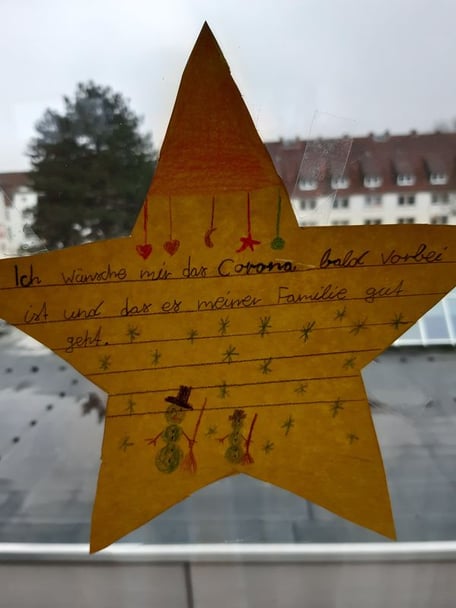 Ich wünsche mir das Corona bald vorbei
ist und das es meiner Familie gut
geht.